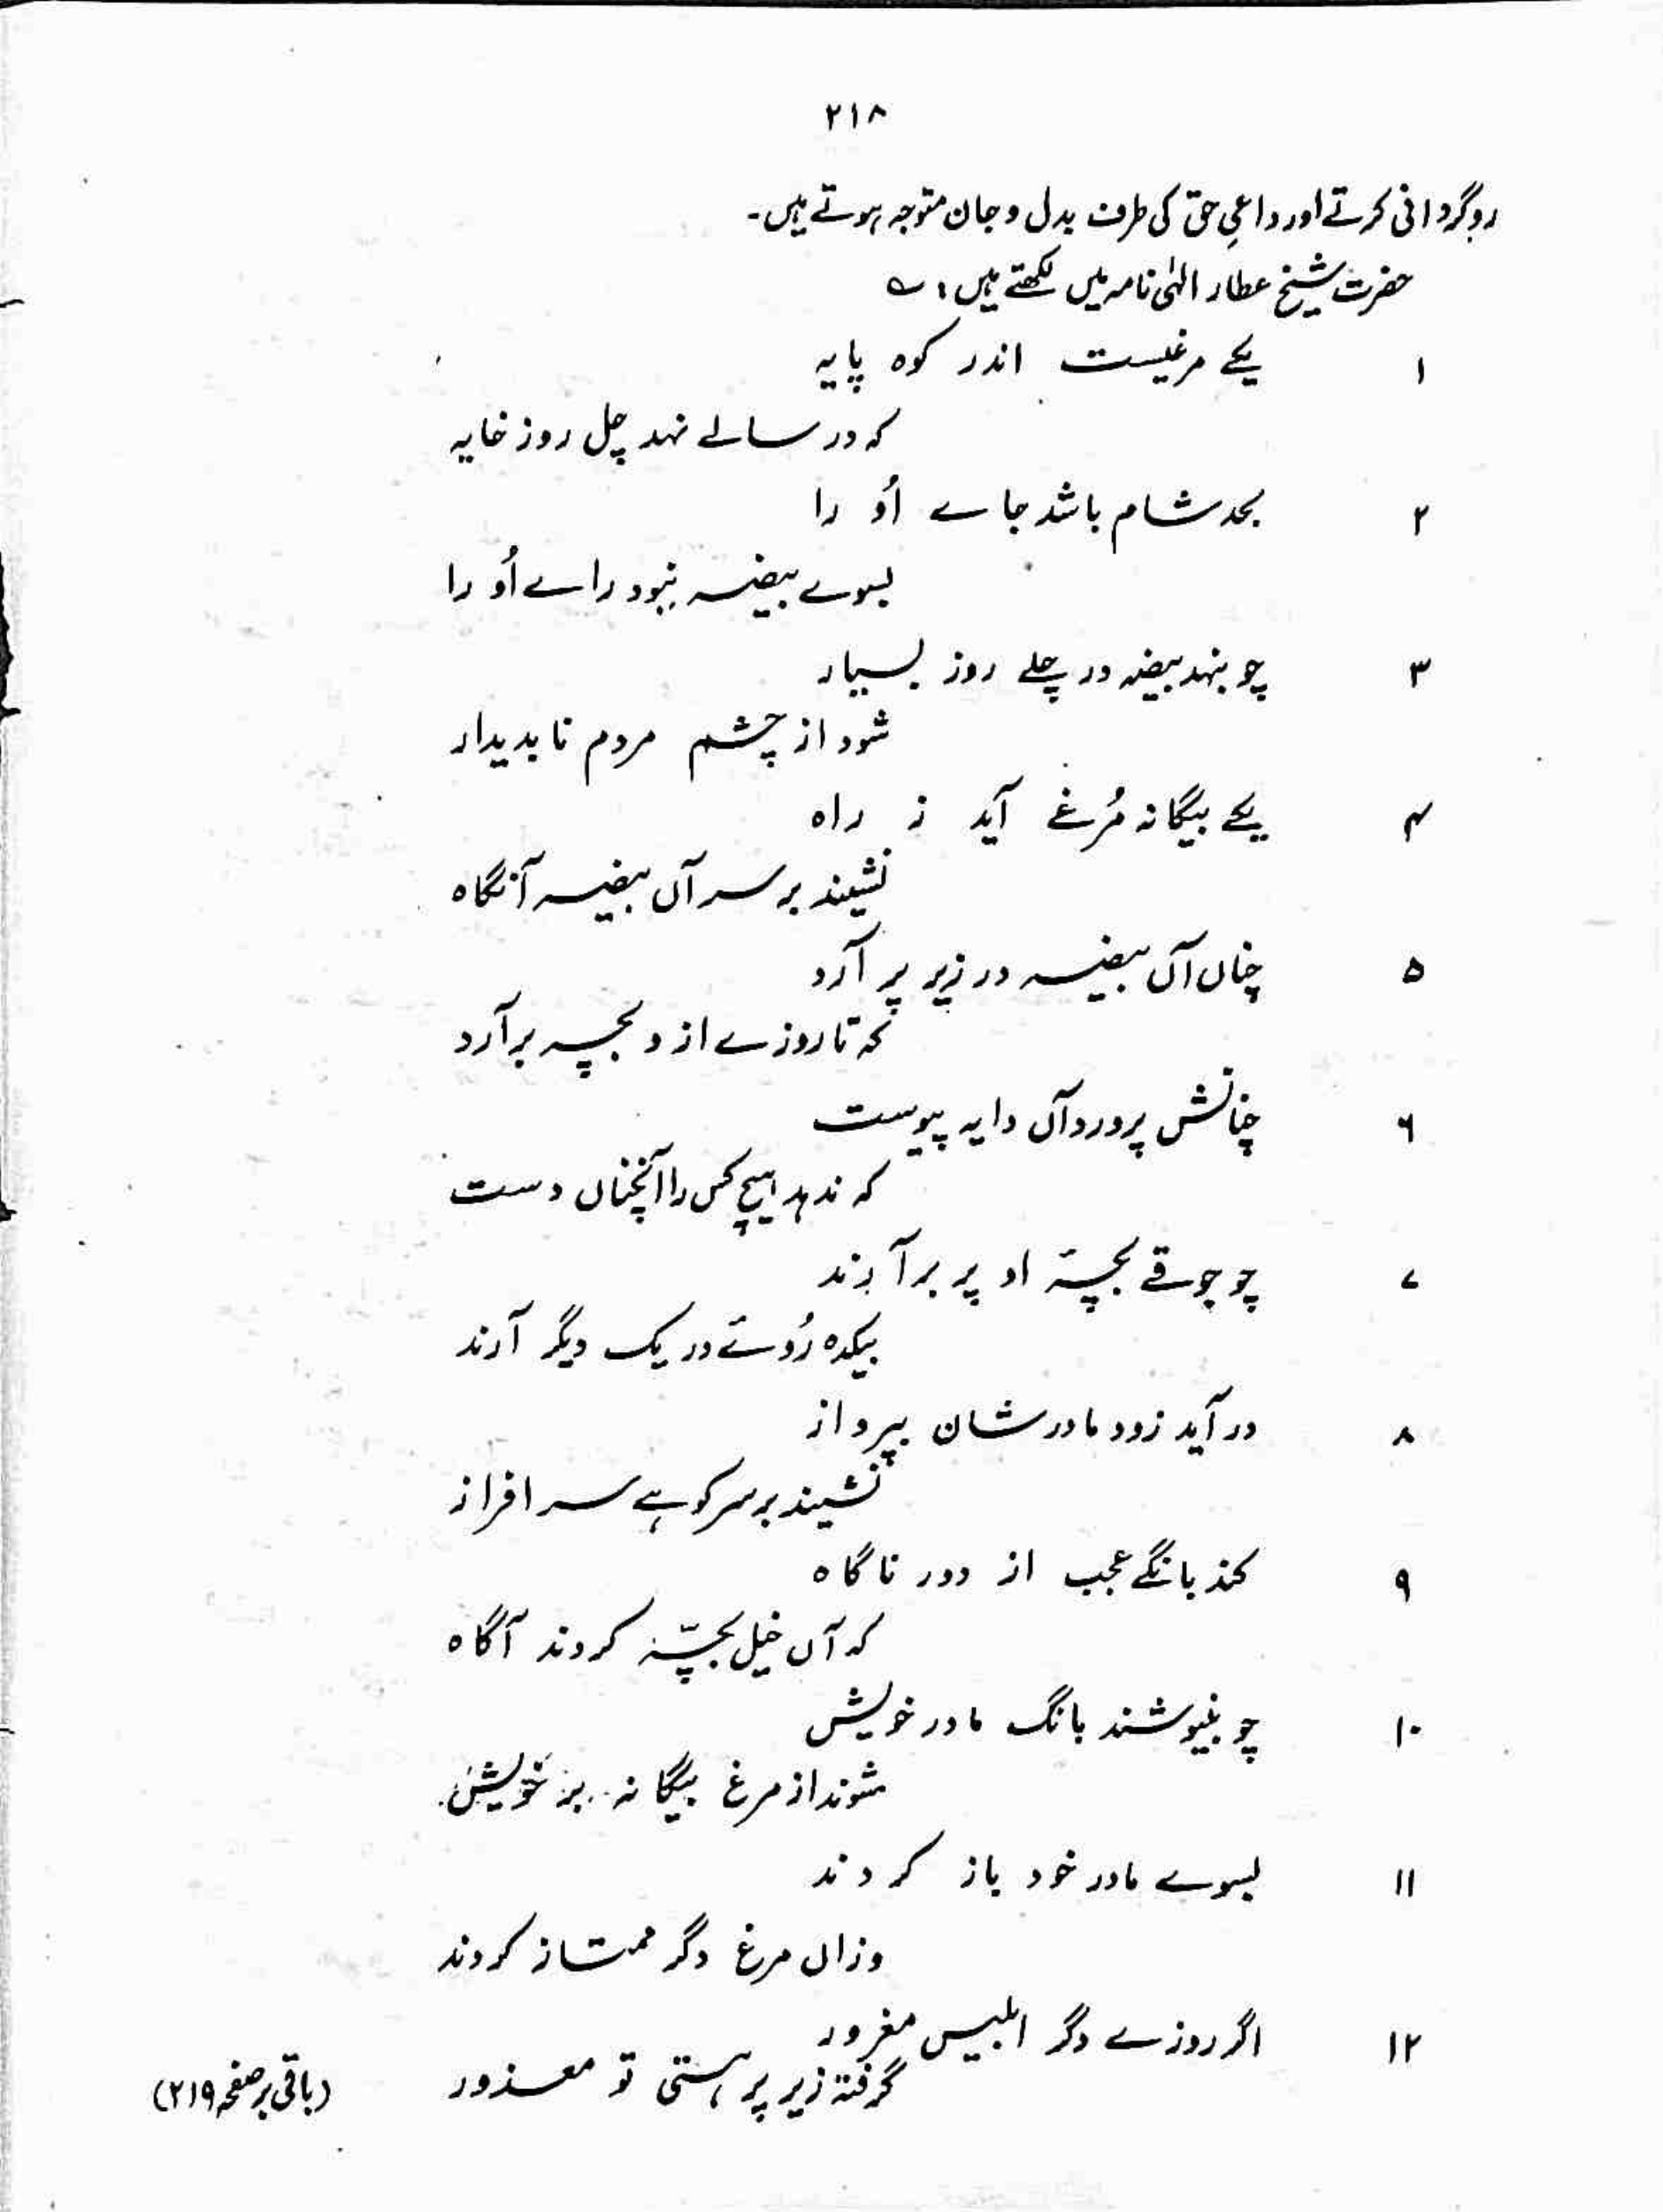 ۲۱۸
روگردانی کرتے اور داعیِ حق کی طرف بدل و جان متوجہ ہوتے ہیں۔
حضرت شیخ عطار الٰہی نامہ میں لکھتے ہیں: ؎
۱ یکے مرغیست اندر کوہ پایہ
کہ در سالے نہد چل روز خایہ
۲ بحد شام باشد جاے اُو را
بسوے بیضہ نبود راے اُو را
۳ چو بنہد بیضہ در چلے روز بسیار
شود از چشم مردم ناپدیدار
۴ یکے بیگانہ مُرغے آید ز راہ
نشیند بر سر آں بیضہ آنگاہ
۵ چناں آں بیضہ در زیر پر آرد
کہ تا روزے ازو بچہ برآرد
۶ چنانش پرورد آں دایہ پیوست
کہ ندہد ہیچ کس را آنچناں دست
۷ چو جوقے بچۂ او پر برآرند
بیکدہ رُوئے در یک دیگر آرند
۸ در آید زود مادر شان بپرواز
نشیند بر سر کوہے سر افراز
۹ کند بانگے عجب از دور ناگاہ
کہ آں خیل بچّہ کردند آگاہ
۱۰ چو بنیوشند بانگ مادر خویش
شوند از مرغ بیگانہ بر خویش
۱۱ بسوے مادر خود باز کردند
وزاں مرغ دگر ممتاز کردند
۱۲ اگر روزے دگر ابلیس مغرور
گرفتہ زیر پر ہستی تو معذور
(باقی بر صفحہ ۲۱۹)